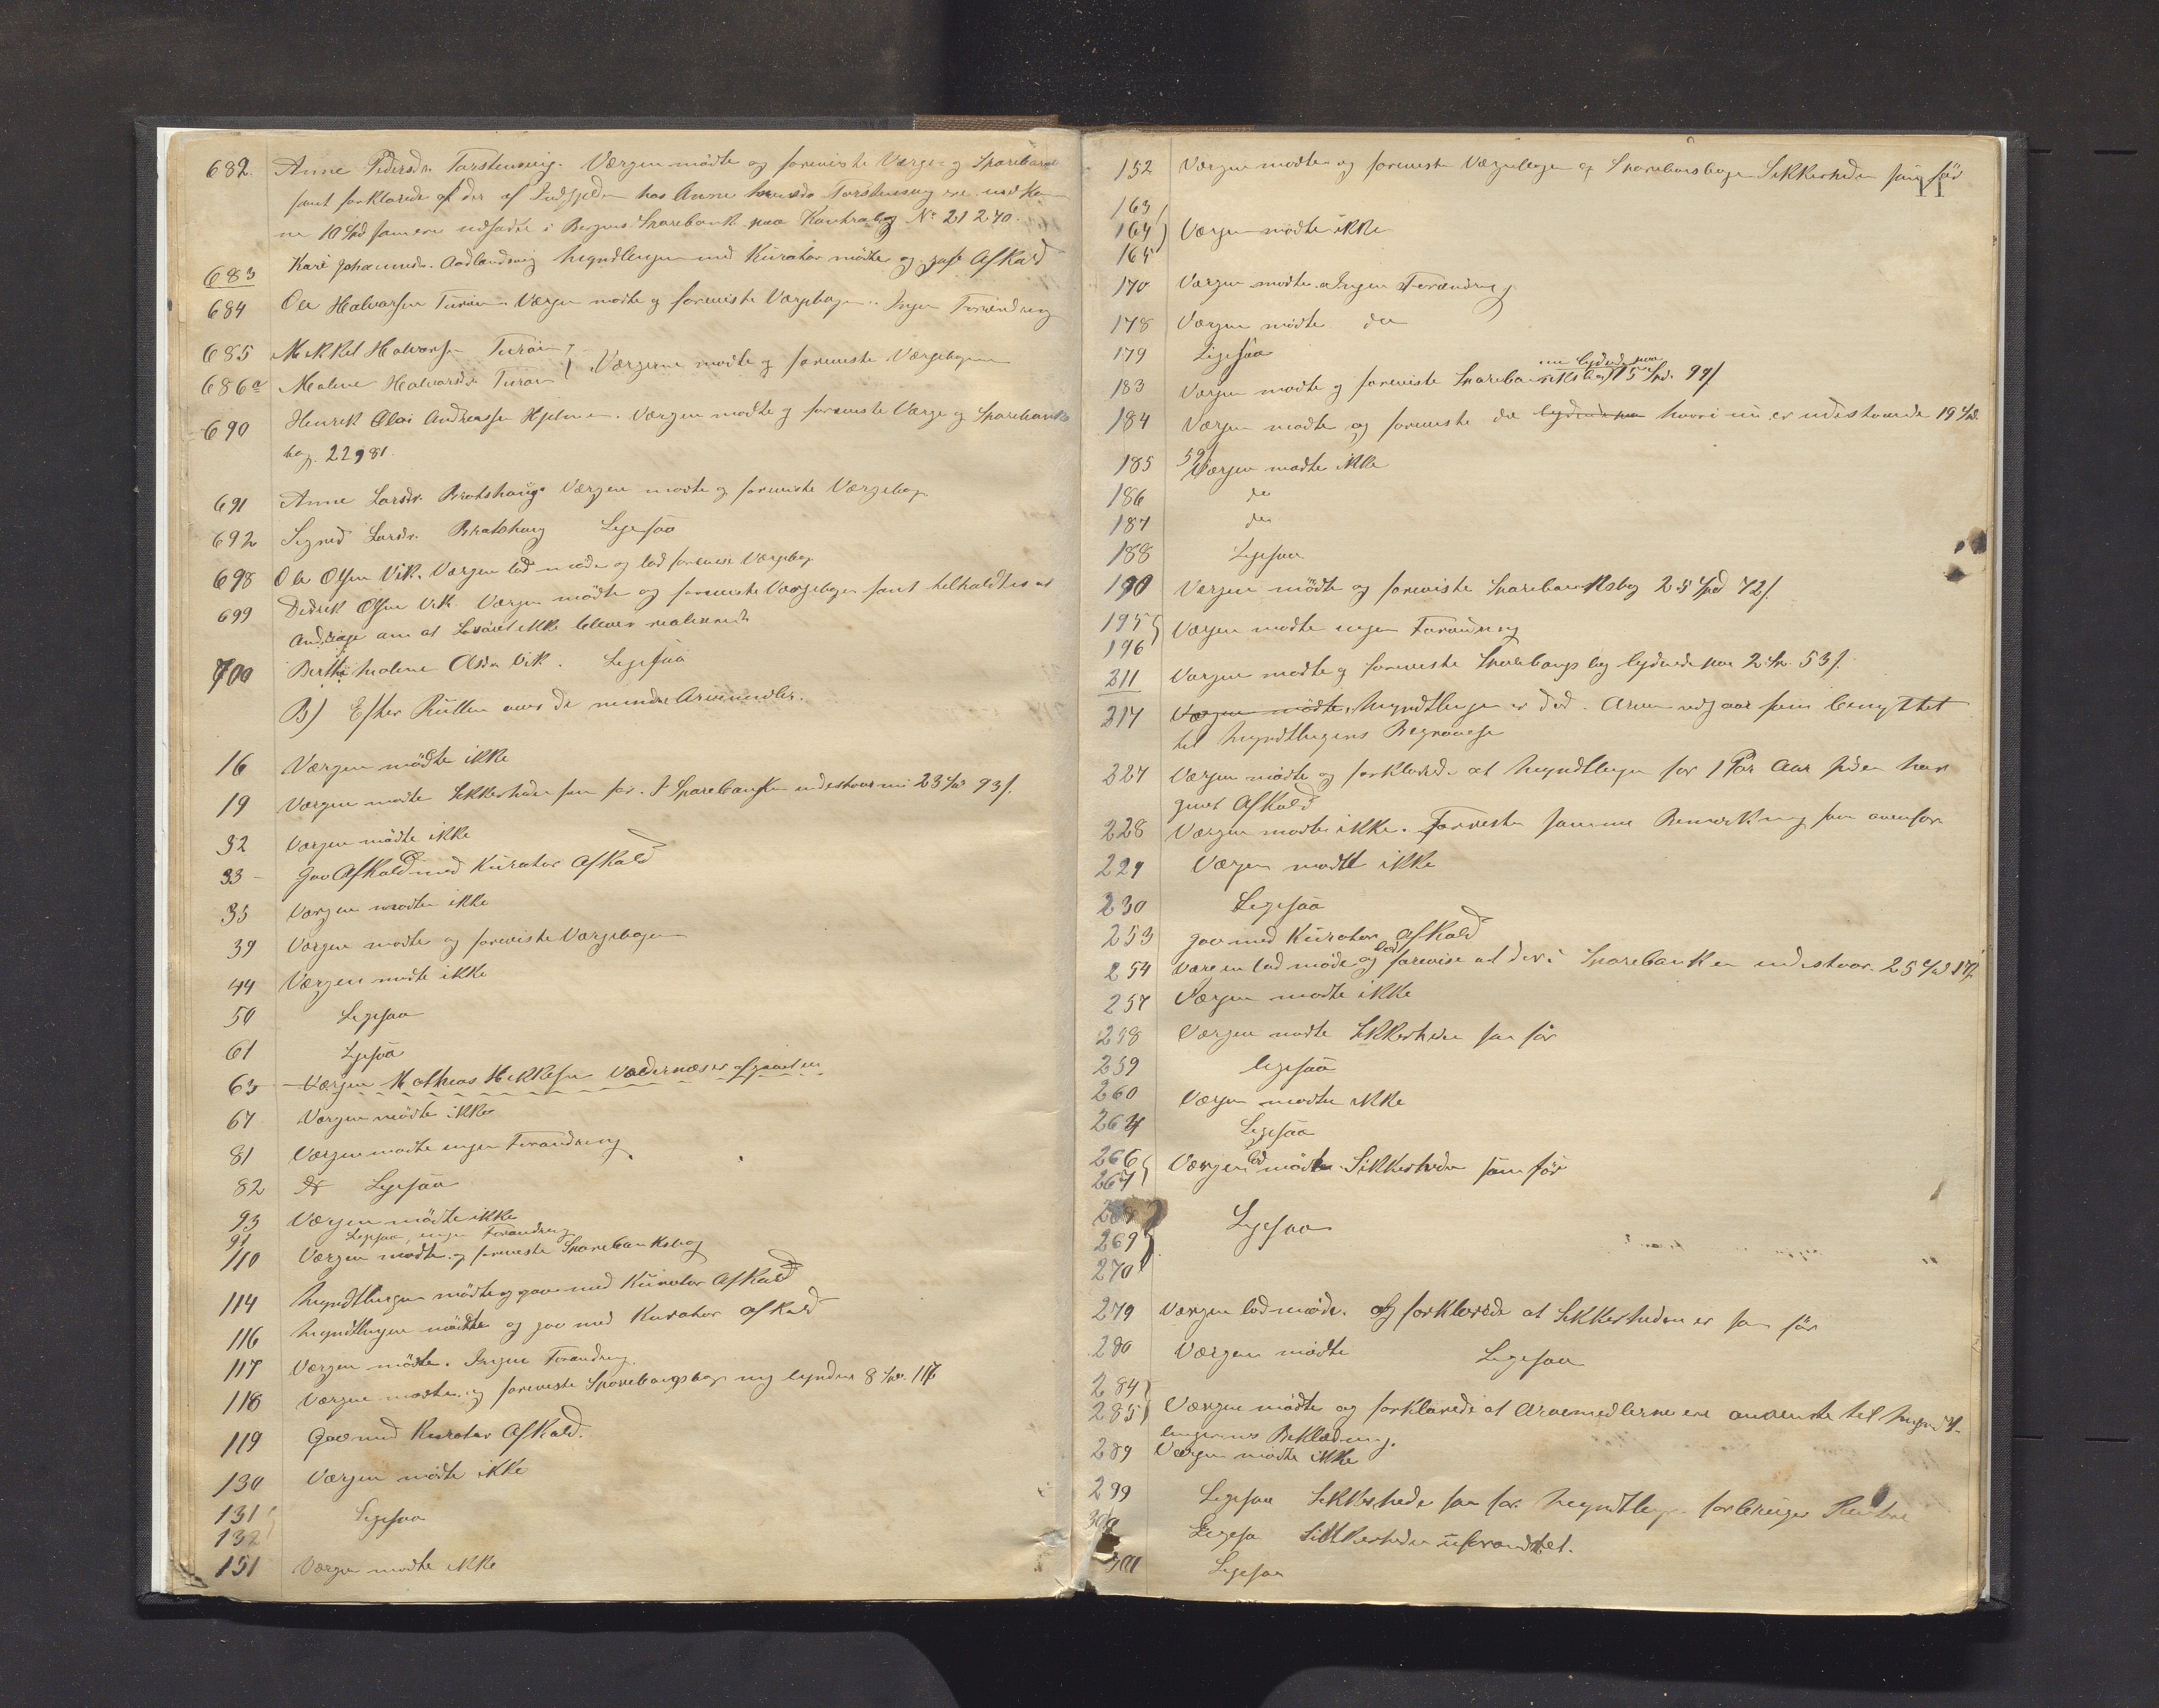 682. Anne Pedersdr. Torstensvig. Værgen mödte og foreviste Værge og Sparebank
samt forklarede at der af Indgjelden hos Anne Torstensvig ere
ne 10 Spd som ere udsatte i Bergens Sparebank paa Kontrabog No 21240.
683 Kari Johannesdr. Aadlandsvig Myndlingen med Kurator mödte og gav Afkald
684 Ole Halvorsen Turöen Værgen mödte og foreviste Værgebogen. Ingen Forandring
685 Mikkel Halvorsen Turöen
686a Malene Halvorsdr. Turöen } Værgerne mödte og foreviste Værgebogen
690 Henrik Olai Andreassen Hjelmen. Værgen mödte og foreviste Værge og Sparebanks
bog. 22981.
691 Anne Larsdr. Bratshaug Værgen mödte og foreviste Værgebog
692 Sigrid Larsdr. Bratshaug Ligesaa
698 Ole Olsen Vik. Værgen lod möde og lod forevise Værgebog
699 Didrik Olsen Vik Værgen mödte og foreviste Værgebogen samt tilholdtes at
andrage om at Lösöret ikke bliver realiseret
700 Berthe Malene Olsdr Vik. Ligesaa
B) Efter Rullen over de mindre Arvemidler.
16 Værgen mödte ikke
19 Værgen mödte Sikkerheden som för. I Sparebanken indestaar nu 23 Spd 93 s.
32 Værgen mödte ikke
33 Gav Afkald med Kurator Afkald
35 Værgen mödte ikke
39 Værgen mödte og foreviste Værgebogen
44 Værgen mödte ikke
50 Ligesaa
61 Ligesaa
63 Værgen Mathias Mikkelsen Valdernæs er afgaaet
67 Værgen mödte ikke
81 Værgen mödte ingen Forandring
82 Ligesaa
93 Værgen mödte ikke
94 Ligesaa, ingen Forandring
110 Værgen mödte og foreviste Sparebanksbog
114 Myndlingen mödte og gav med Kurator Afkald
116 Myndlingen mödte og gav med Kurator Afkald
117 Værgen mödte. Ingen Forandring.
118 Værgen mödte og foreviste Sparebangsbog lydende 8 Spd. 117
119 Gav med Kurator Afkald.
130 Værgen mödte ikke
131 Ligesaa
132
151 Værgen mödte ikke
11
152 Værgen mödte og foreviste Værgebogen og Sparebansbogen Sikkerheden som för
163
164 } Værgen mödte ikke
165
170 Værgen mödte Ingen Forandring
178 Værgen mödte do
179 Ligesaa
nu lydende paa
183 Værgen mödte og foreviste Sparebanksbog 15 Spd. 99 s
184 Værgen mödte og foreviste do lydende paa hvori nu er indestaaende 19 Spd.
59 s
185 Værgen mödte ikke
186 do
187 do
188 Ligesaa
190 Værgen mödte og foreviste Sparebanksbog 25 Spd 72 s.
195
196 } Værgen mödte ingen Forandring
211 Værgen mödte og foreviste Sparebangs bog lydende paa 2 Sp. 53 s.
217 Værgen mödte, Myndtlingen er död. Arven udgaar som benyttet
til Myndtlingens Begravelse
227 Værgen mödte og forklarede at Myndtlingen for 1 Par Aar siden har
givet Afkald
228 Værgen mödte ikke. Foreviste samme Bemærkning som ovenfor
229 Værgen mödte ikke
230 Ligesaa
253 gav med Kurator Afkald
254 Værgen lod möde og lod forevise at der i Sparebanken indestaar. 25 Spd 17 s.
257 Værgen mödte ikke
258 Værgen mödte Sikkerheden som för
259 ligesaa
260 Værgen mödte ikke
264 Ligesaa
266
267 } Værgen lod möde Sikkerheden som för
268
269 } Ligesaa
270
279 Værgen lod möde. og forklarede at Sikkerheden er som för
280 Værgen mödte Ligesaa
284
285 } Værgen mödte og forklarede at Arvemidlerne ere anvendte til Myndt-
lingernes Beklædning.
289 Værgen mödte ikke
299 Ligesaa Sikkerheden som för Myndtlingen forbruger Renterne
300 Ligesa Sikkerheden uforandret.
301 Ligesaa